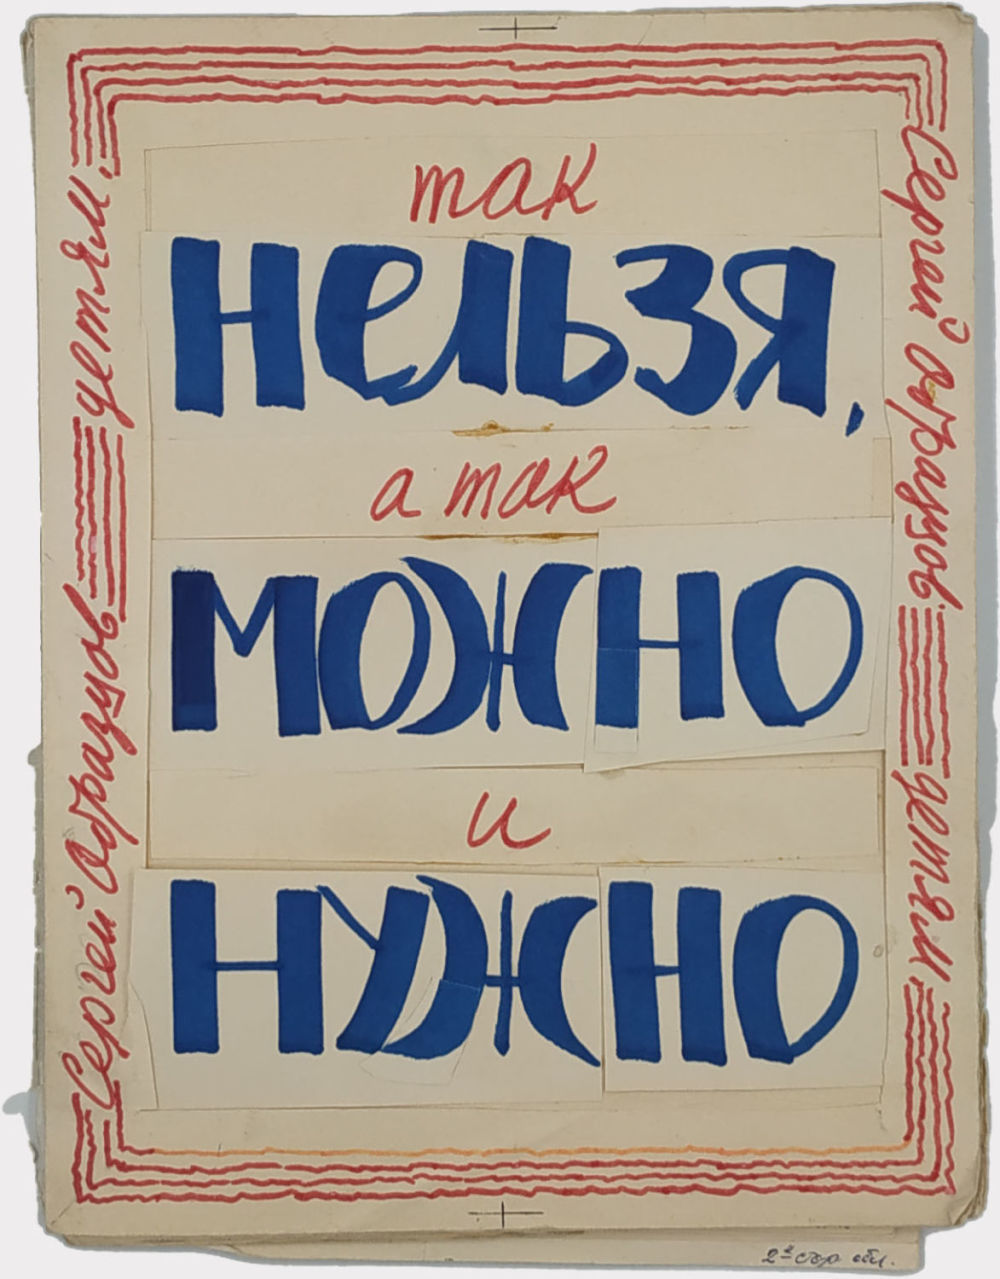 так
нельзя,
а так
можно
и
нужно
Сергей Образцов
детям,
Сергей Образцов
детям,
2я стор обл.